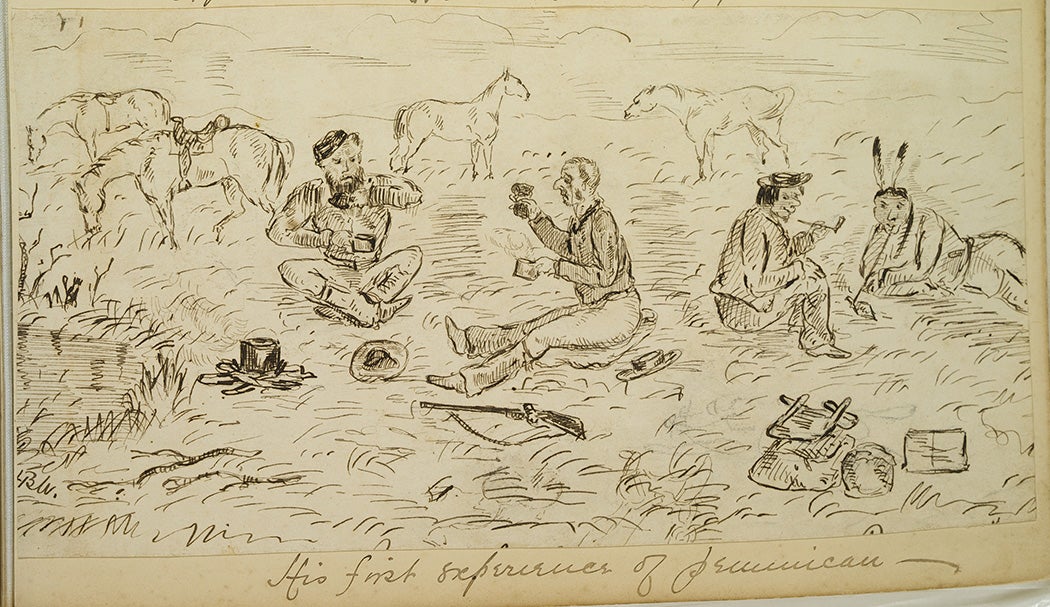 B.W.
His first experience of pemmican —